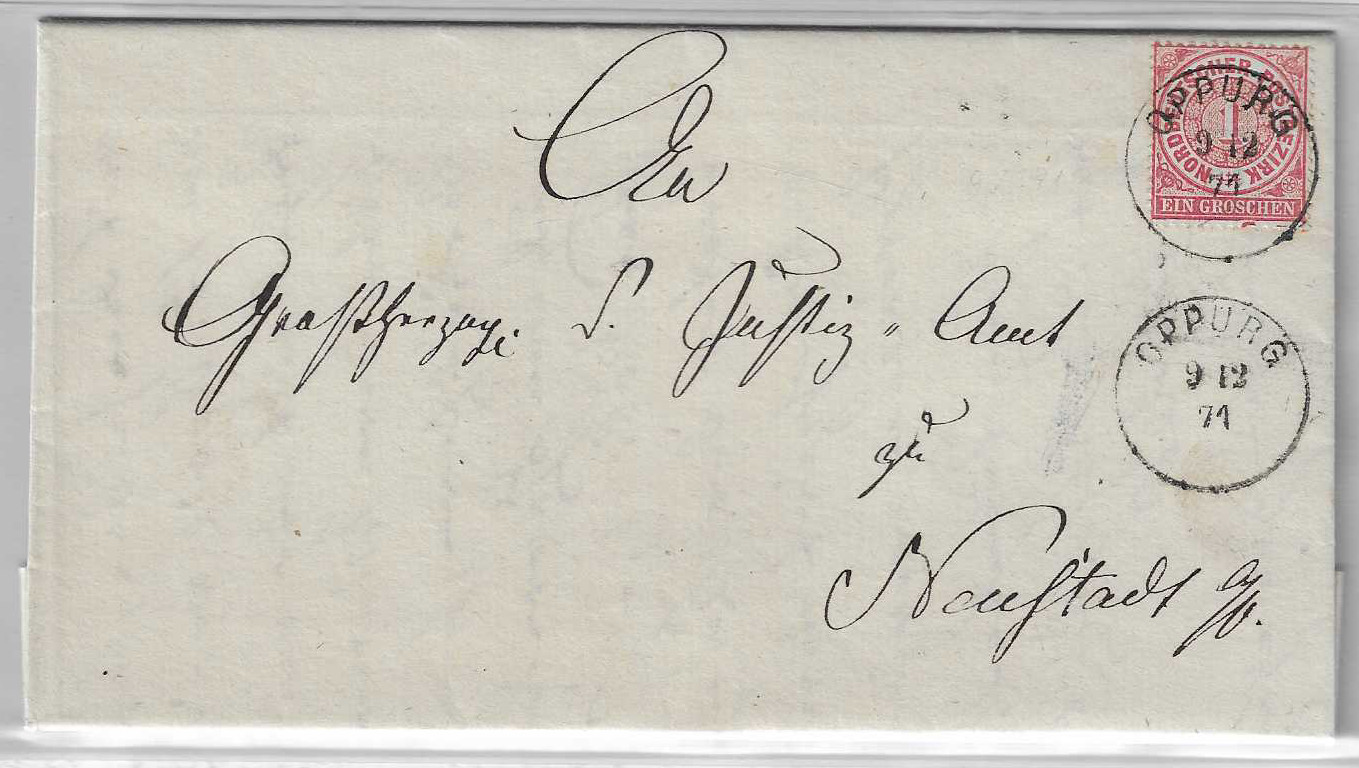 An
Großherzogl. S. Justiz-Amt
zu
Neustadt a/O.
NORDDEUTSCHER POSTBEZIRK
1
EIN GROSCHEN
OPPURG
9 12
71
OPPURG
9 12
71